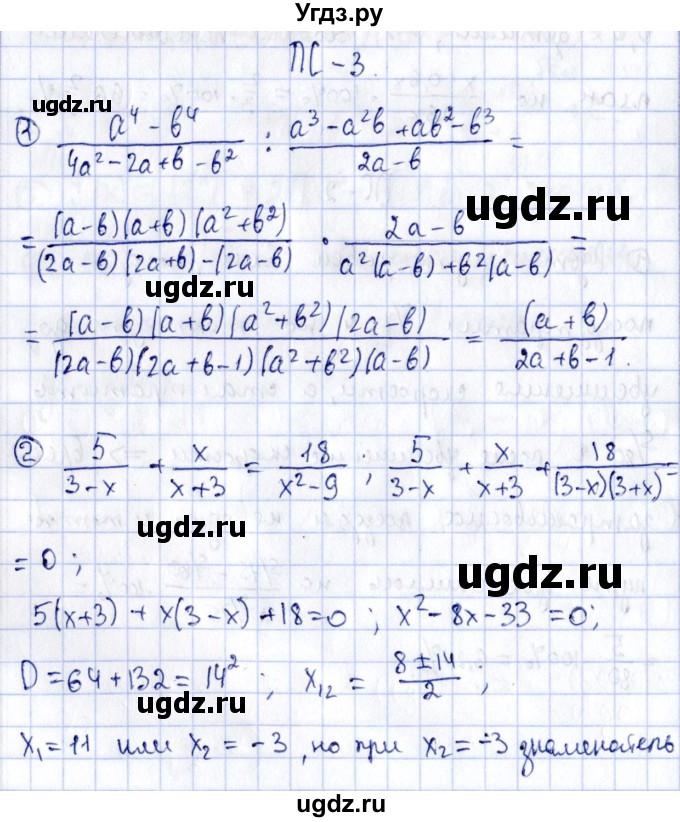 Угдз.ру
ПС-3.
ugdz.ru
① (a⁴ - b⁴)/(4a² - 2a + b - b²) : (a³ - a²b + ab² - b³)/(2a - b) =
ugdz.ru
= ((a-b)(a+b)(a²+b²))/((2a-b)(2a+b)-(2a-b)) · (2a-b)/(a²(a-b)+b²(a-b)) =
ugdz.ru
= ((a-b)(a+b)(a²+b²)(2a-b))/((2a-b)(2a+b-1)(a²+b²)(a-b)) = (a+b)/(2a+b-1).
ugdz.ru
② 5/(3-x) + x/(x+3) = 18/(x²-9) ; 5/(3-x) + x/(x+3) + 18/((3-x)(3+x)) =
ugdz.ru
= 0 ;
ugdz.ru
5(x+3) + x(3-x) + 18 = 0 ; x² - 8x - 33 = 0;
D = 64 + 132 = 14² ; x₁₂ = (8 ± 14)/2 ;
ugdz.ru
x₁ = 11 или x₂ = -3, но при x₂ = -3 знаменатель
ugdz.ru